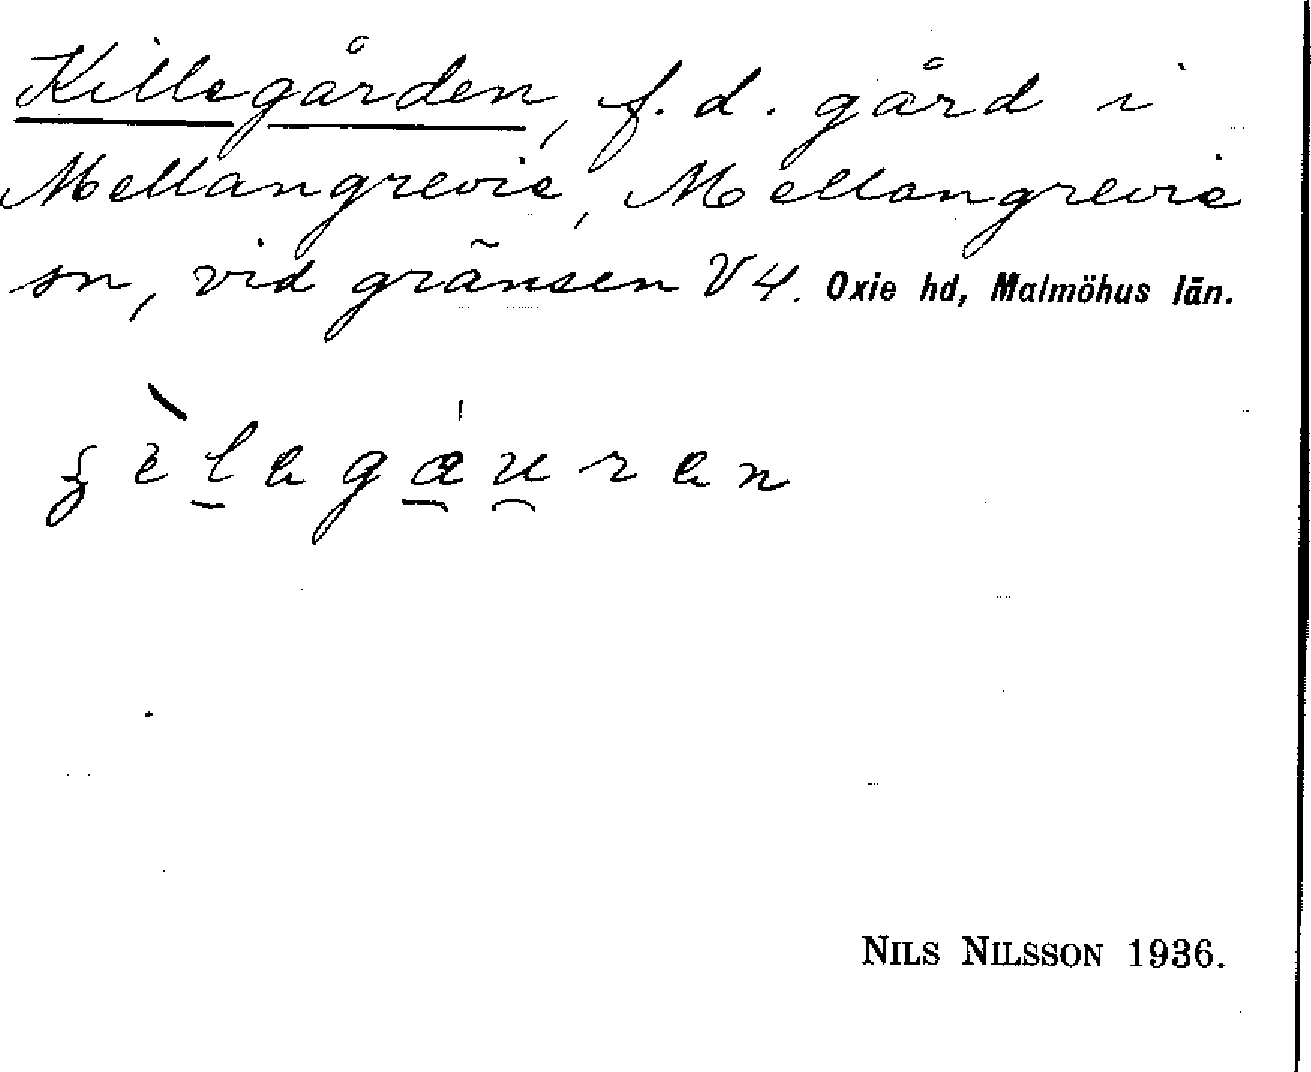 Killegården, f.d. gård i
Mellangrevie, Mellangrevie
sn, vid gränsen V4. Oxie hd, Malmöhus län.
NILS NILSSON 1936.